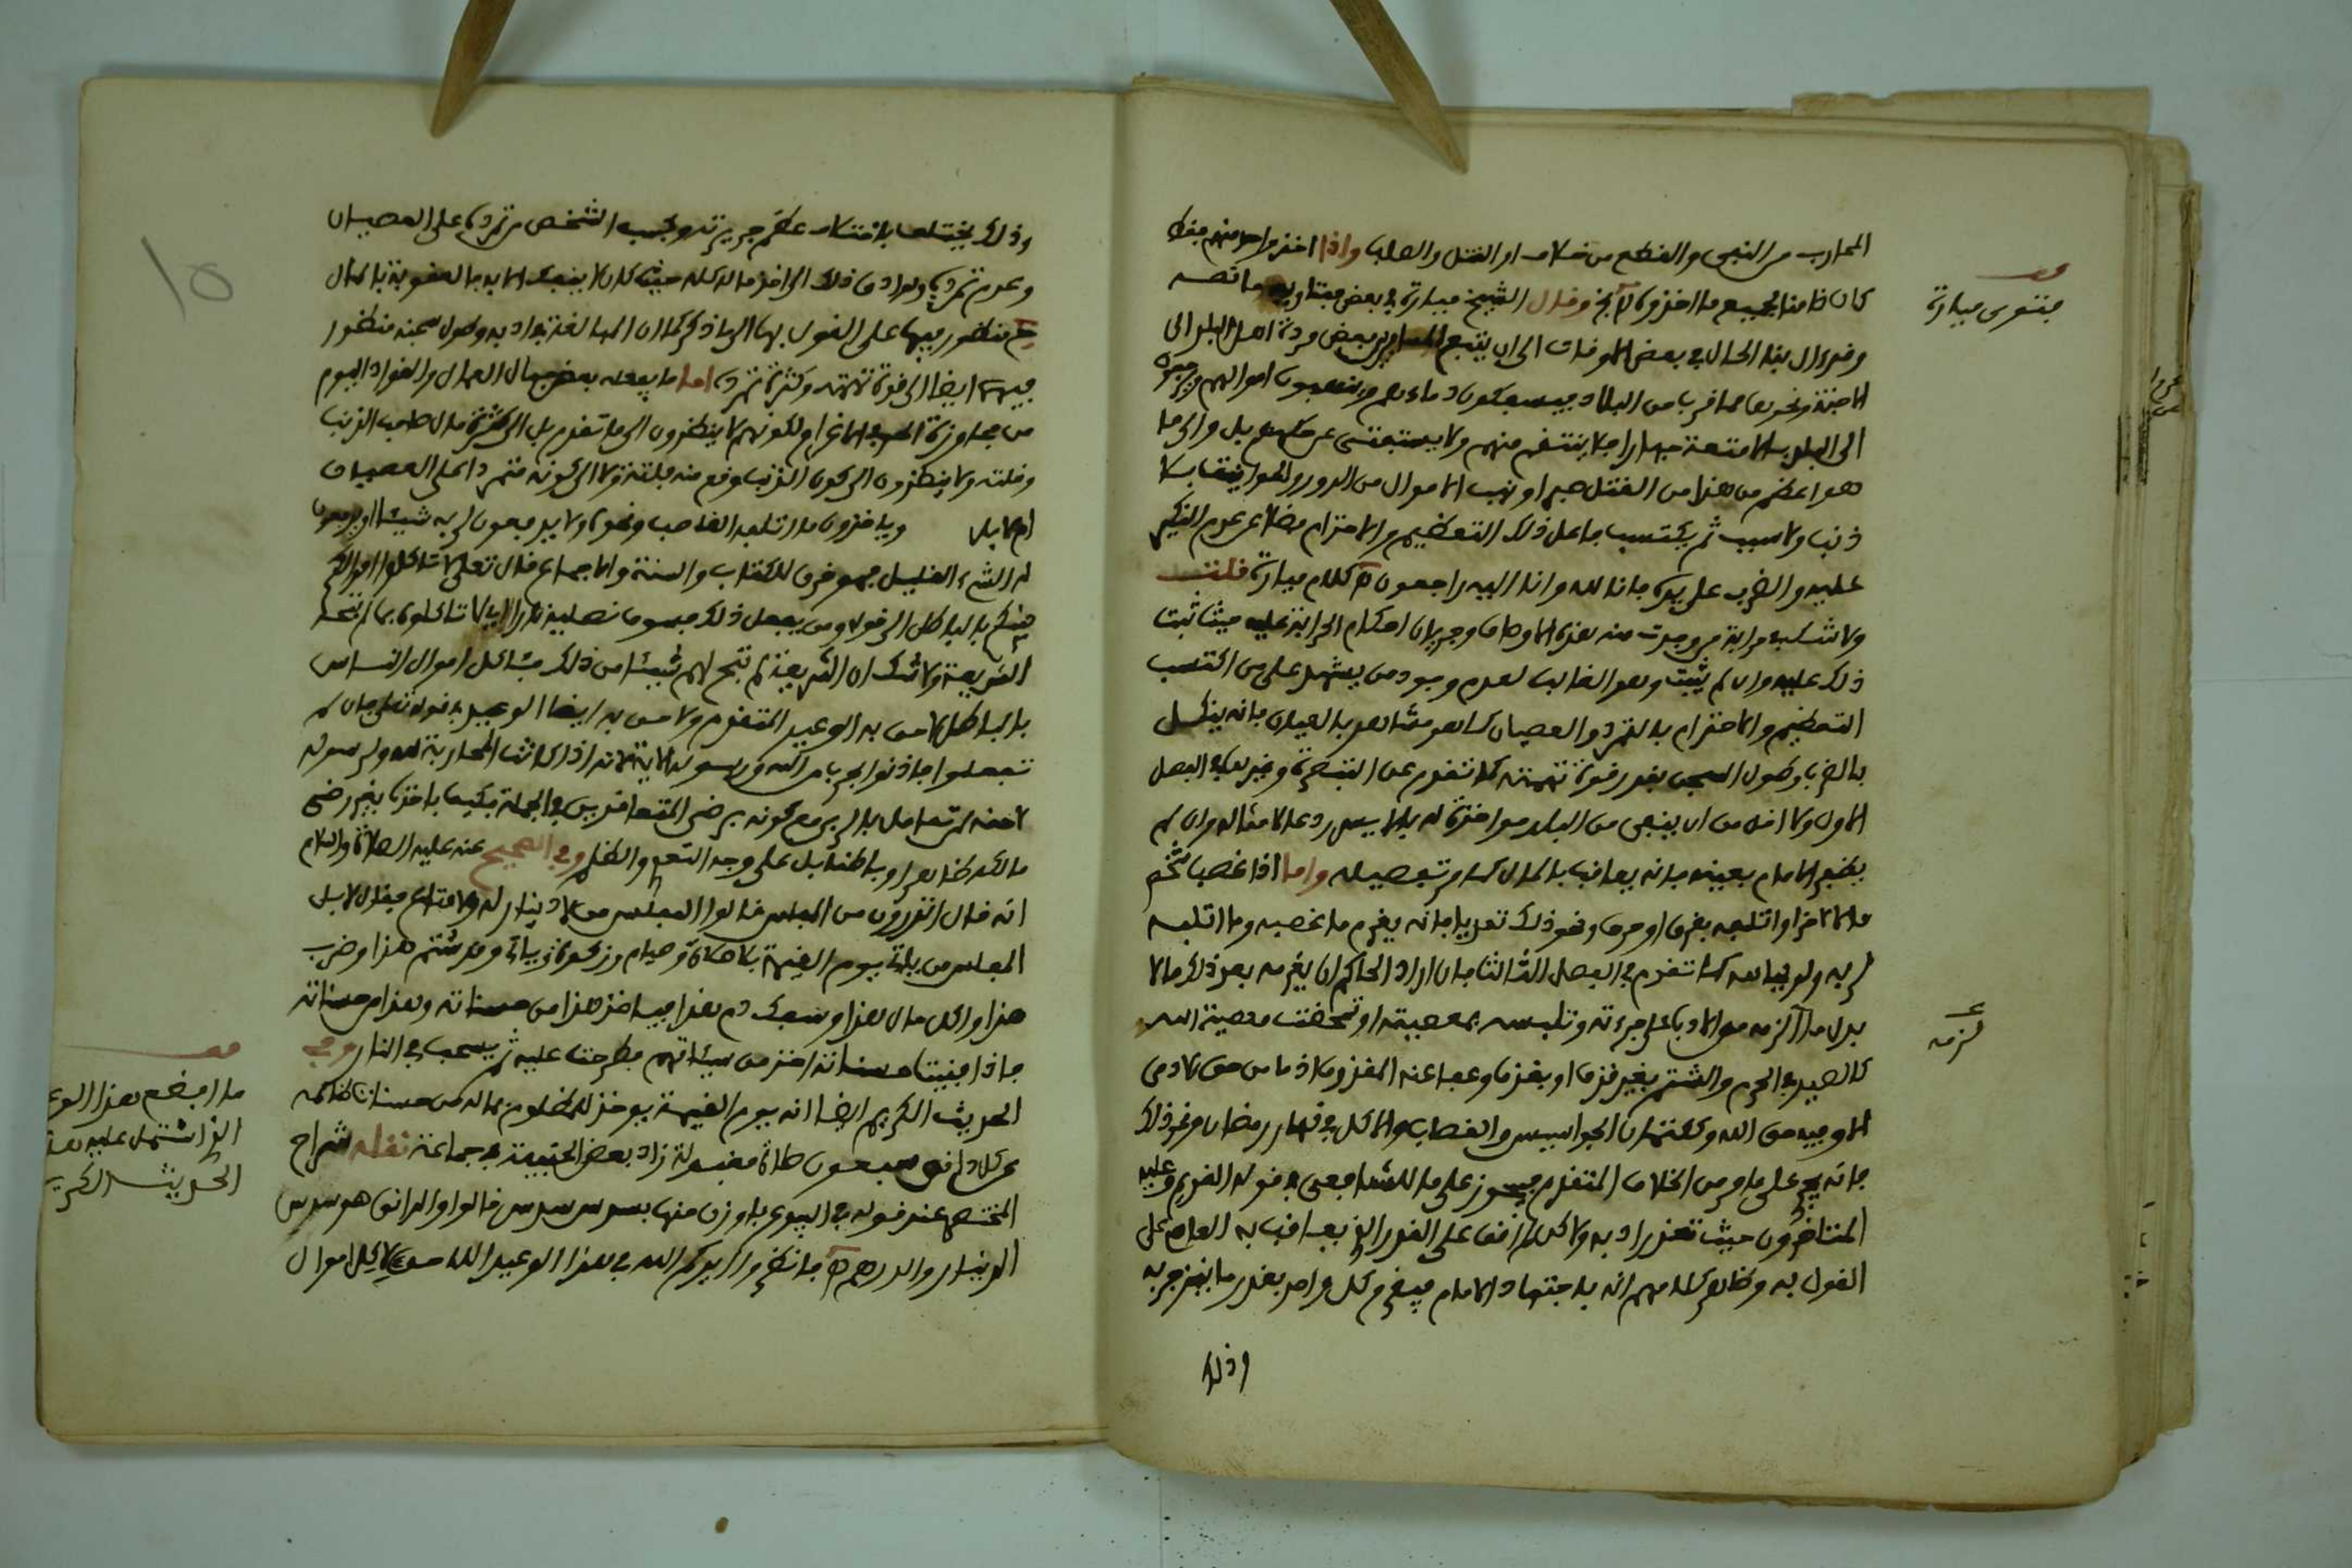 المحارب من النفي والقطع من خلاف او القتل والصلب واذا اخذ واحد منهم فقط
كان ضامنا لجميع ما اخذوه الخ وقال الشيخ ميارة في بعض فتاويه ما نصه
وقد ءال بنا الحال في بعض الاوقات الى ان يتبع بعض مردة اهل البلد الى
الاجنة ونحوها مما قرب من البلاد فيسفكون دماءهم وينهبون اموالهم
الى البلد بالامتعة جهارا فلا ينتقم منهم ولا يستفتى عن حكمهم بل والى ما
هو اعظم من هذا من القتل صبرا ونهب الاموال من الدور والحوانيت بلا
ذنب ولا سبب ثم يكتسب فاعل ذلك التعظيم والاحترام فضلا عن عدم النكير
عليه والضرب على يده فانا لله وانا اليه راجعون كلام ميارة قلت
ولا شك في حرابة من وجدت منه هذه الاوصاف وجريان احكام الحرابة عليه حيث ثبت
ذلك عليه وان لم يثبت وهو الغالب لعدم وجود من يشهد على من اكتسب
التعظيم والاحترام بالتمرد والعصيان كما هو مشاهد بالعيان فانه ينكل
بالضرب وطول السجن بقدر قوة تهمته كما تقدم عن التبصرة وغيرها في الفصل
الاول ولا اقل من ان ينفى من البلد ردعا لامثاله وان لم
يظهر للامام بعينه فانه يعاقب بالمال كما مر تفصيله واما اذا غصب شخص
مالا لاخر او اتلفه بغرق او حرق ونحو ذلك تعديا فانه يغرم ما غصبه وما اتلفه
لربه ولو تيا كما تقدم في الفصل الثالث فان اراد الحاكم ان يغرمه بعد ذلك مالا
بدل ما الزمه من الادب على جرءته وتلبسه بمعصيته او تمحضت معصية لله
كالصيد في الحرم والشتم بغير قذف او بقذف وعفا عنه المقذوف اذ ما من حق لادمي
الا وفيه حق الله وككتمان الجواسيس والغصاب والاكل في نهار رمضان ونحو ذلك
فانه يجري على ما مر من الخلاف المتقدم فيجوز على ما للشافعي في قوله القديم وعليه
المتاخرون حيث تعذر ادبه ولاكن لم اقف على القدر الذي يعاقب به العاصي على
القول به وظاهر كلامهم انه باجتهاد الامام فيغرم كل واحد بقدر ما ينزجر به
وذلك
قف
فتوى ميارة
لزمه
وذلك يختلف باختلاف عظم جريرته وبحسب الشخص من تمرده على العصيان
وعدم تمرده وربما ادى ذلك الى اخذ ماله كله حيث كان لا ينفك الا به فالعقوبة بالمال
منظور فيها على القول بها الى ما ذكر كما ان المبالغة في ادبه وطول سجنه منظور
فيهما ايضا الى قوة تهمته وكثرة تمرده اما ما يفعله بعض جهال العمال والقواد اليوم
من مجاوزة الحد في الاغرام ولكونهم لا ينظرون الى ما تقدم بل الى كثرة مال صاحب الذنب
وقلته ولا ينظرون الى كون الذنب وقع منه فلتة ولا الى كونه متمردا على العصيان
ام لا بل وياخذون ما اتلفه الغاصب ونحوه ولا يدفعون لربه شيئا او يدفعون
له الشيء القليل فهو خرق للكتاب والسنة والاجماع قال تعالى لا تاكلوا اموالكم
بينكم بالباطل الى قوله ومن يفعل ذلك فسوف نصليه نارا الاية لا تاكلوها بما لم تبحه
الشريعة ولا شك ان الشريعة لم تبح لهم شيئا من ذلك فئاكل اموال الناس
بالباطل لاحق به الوعيد المتقدم ولاحق به ايضا الوعيد في قوله تعالى فان لم
تفعلوا فاذنوا بحرب من الله ورسوله الاية لانه اذا كانت المحاربة لله ولرسوله
لاحقة لمن تعامل بالربى مع كونه برضى المتعاقدين في الجملة فكيف باخذها بغير رضى
مالكه ظاهرا وباطنا بل على وجه التعدي والظلم وفي الصحيح عنه عليه الصلاة والسلام
انه قال اتدرون من المفلس قالوا المفلس من لا دينار له ولا متاع فقال لا بل
المفلس من ياتي يوم القيمة بصلاة وصيام وزكوة وياتي وقد شتم هذا وضرب
هذا واكل مال هذا وسفك دم هذا فياخذ هذا من حسناته وهذا من حسناته
فاذا فنيت حسناته اخذ من سيئاتهم فطرحت عليه ثم يسحب في النار وفي
الحديث الكريم ايضا انه يوم القيمة يوخذ للمظلوم بماله من حسنات ظالمه
عن كل دانق سبعون صلاة مقبولة زاد بعض الحنفية في جماعة نقله شراح
المختصر عند قوله في البيوع بأوزن منها بسدس سدس قالوا والدانق هو سدس
الدينار والدرهم فانظروا يرحمكم الله في هذا الوعيد اللاحق لاكل اموال
قف
ما افضع هذا الوعيد
الذي اشتمل عليه هذا
الحديث الكريم
15